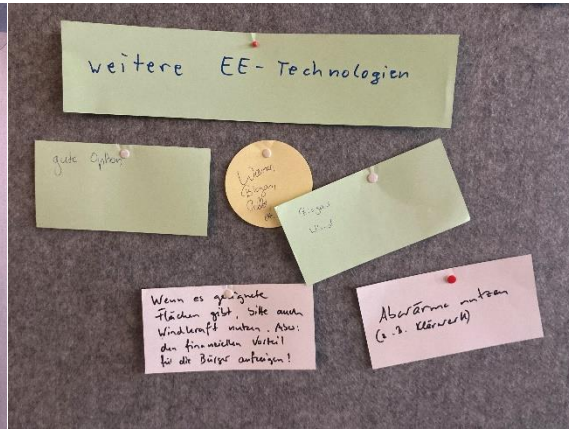 weitere EE-Technologien
gute Option
Biogas
Wind
Wenn es geeignete
Flächen gibt, bitte auch
Windkraft nutzen. Aber:
den finanziellen Vorteil
für die Bürger aufzeigen!
Abwärme nutzen
(z.B. Klärwerk)